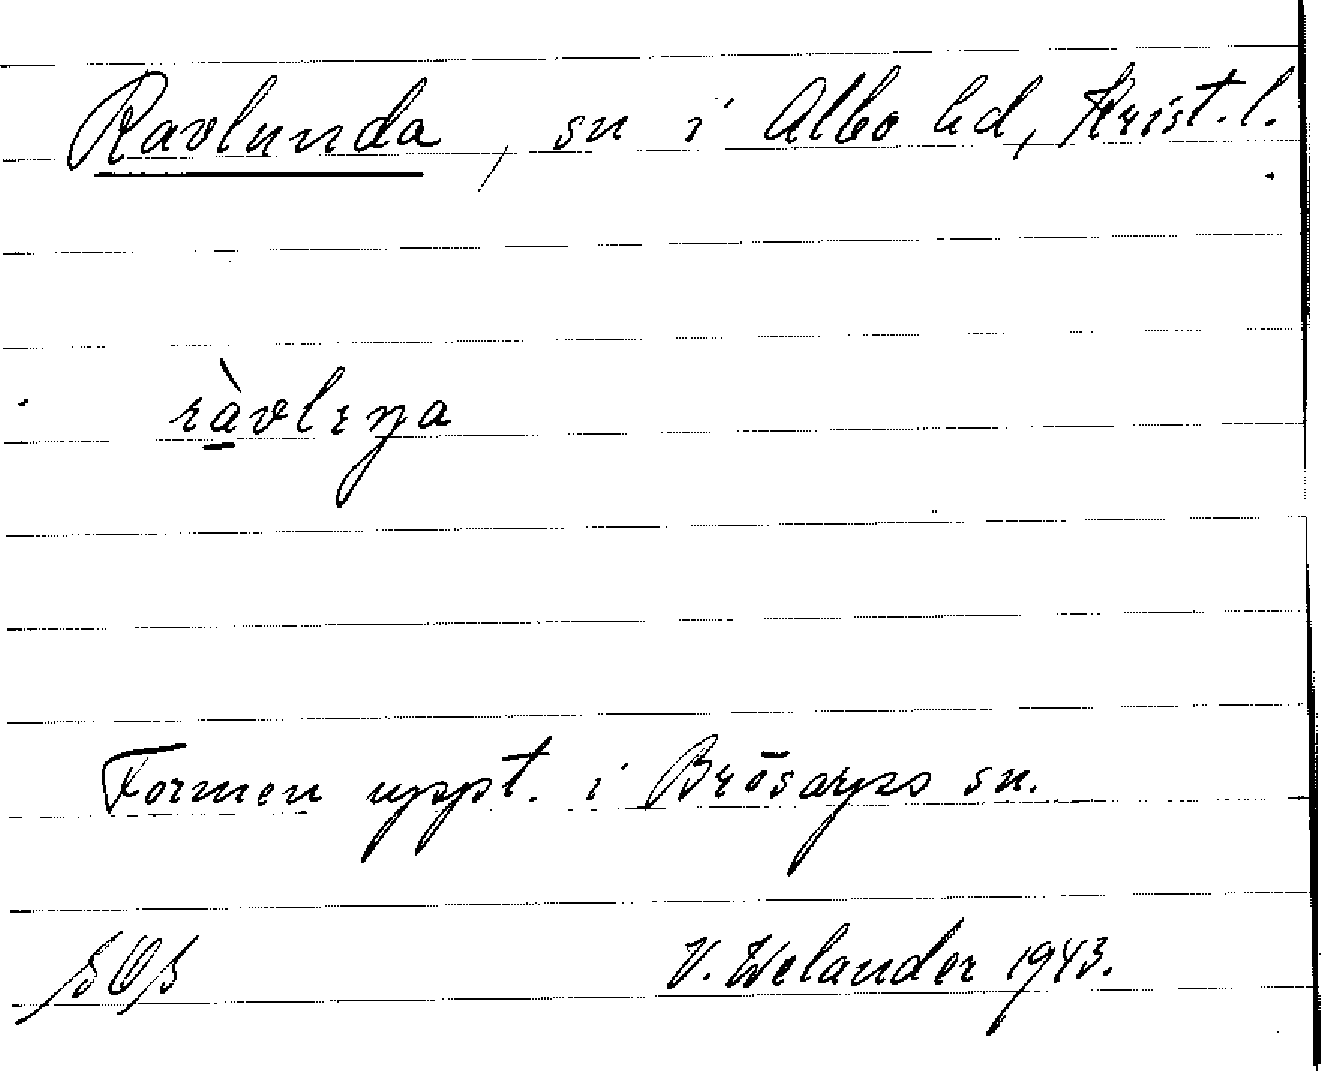 Ravlunda, sn i Albo hd, Krist. l.
Formen uppt. i Brösarps sn.
V. Welander 1943.